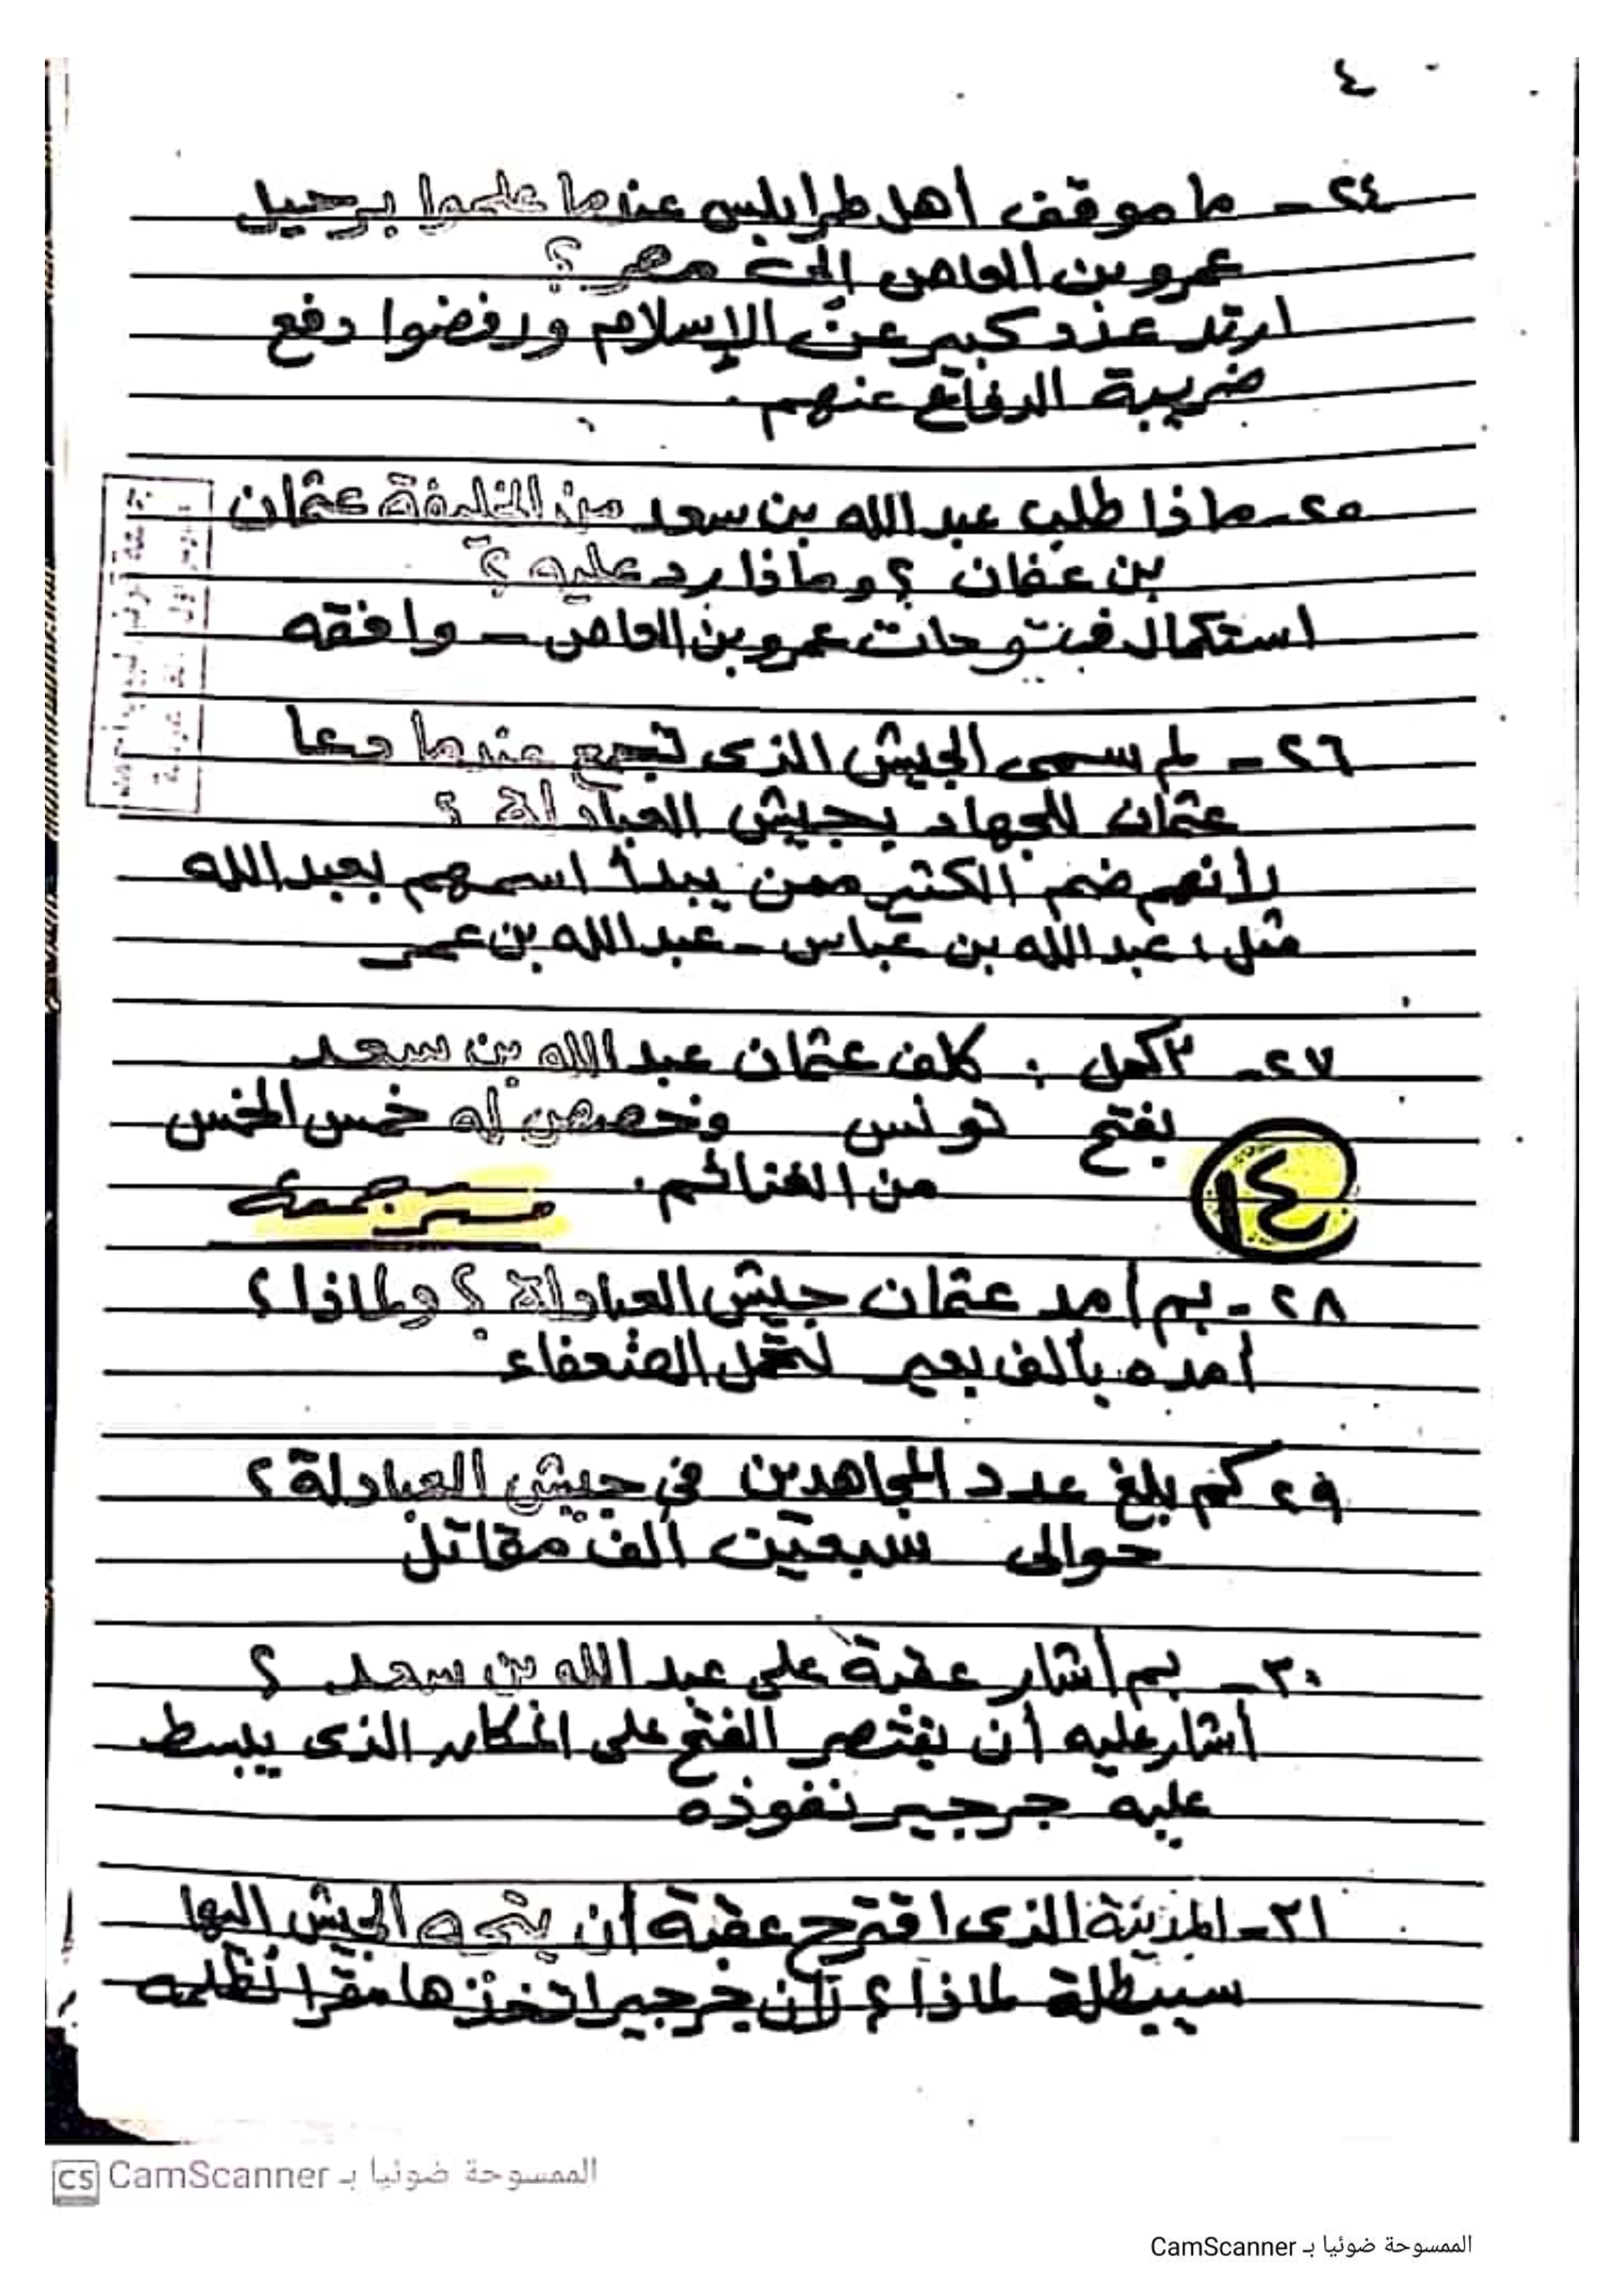 ٤
٢٤- ما موقف أهل طرابلس عندما علموا برحيل
عمرو بن العاص إلى مصر؟
ارتد عدد كبير عن الإسلام ورفضوا دفع
ضريبة الدفاع عنهم.
٢٥- ماذا طلب عبد الله بن سعد من الخليفة عثمان
بن عفان ؟ وماذا رد عليه ؟
استكمال فتوحات عمرو بن العاص - وافقه
٢٦- لم سمى الجيش الذى تجمع عندما دعا
عثمان للجهاد بجيش العبادلة ؟
لأنهم ضم الكثير ممن يبدأ اسمهم بعبد الله
مثل: عبد الله بن عباس - عبد الله بن عمر
٢٧- أكمل : كلف عثمان عبد الله بن سعد
بفتح تونس وخصص له خمس الخمس
من الغنائم.
١٤
٢٨- بم أمد عثمان جيش العبادلة ؟ ولماذا ؟
أمده بألف بعير لتحمل الضعفاء
٢٩ كم بلغ عدد المجاهدين في جيش العبادلة ؟
حوالى سبعين ألف مقاتل
٣٠- بم أشار عقبة على عبد الله بن سعد ؟
أشار عليه أن يقتصر الفتح على المكان الذى يبسط
عليه جرجير نفوذه
٣١- المدينة الذى اقترح عقبة أن يتجه الجيش اليها
سبيطلة لماذا ؟ لأن جرجير اتخذها مقرا لحكمه
الممسوحة ضوئيا بـ CamScanner
الممسوحة ضوئيا بـ CamScanner